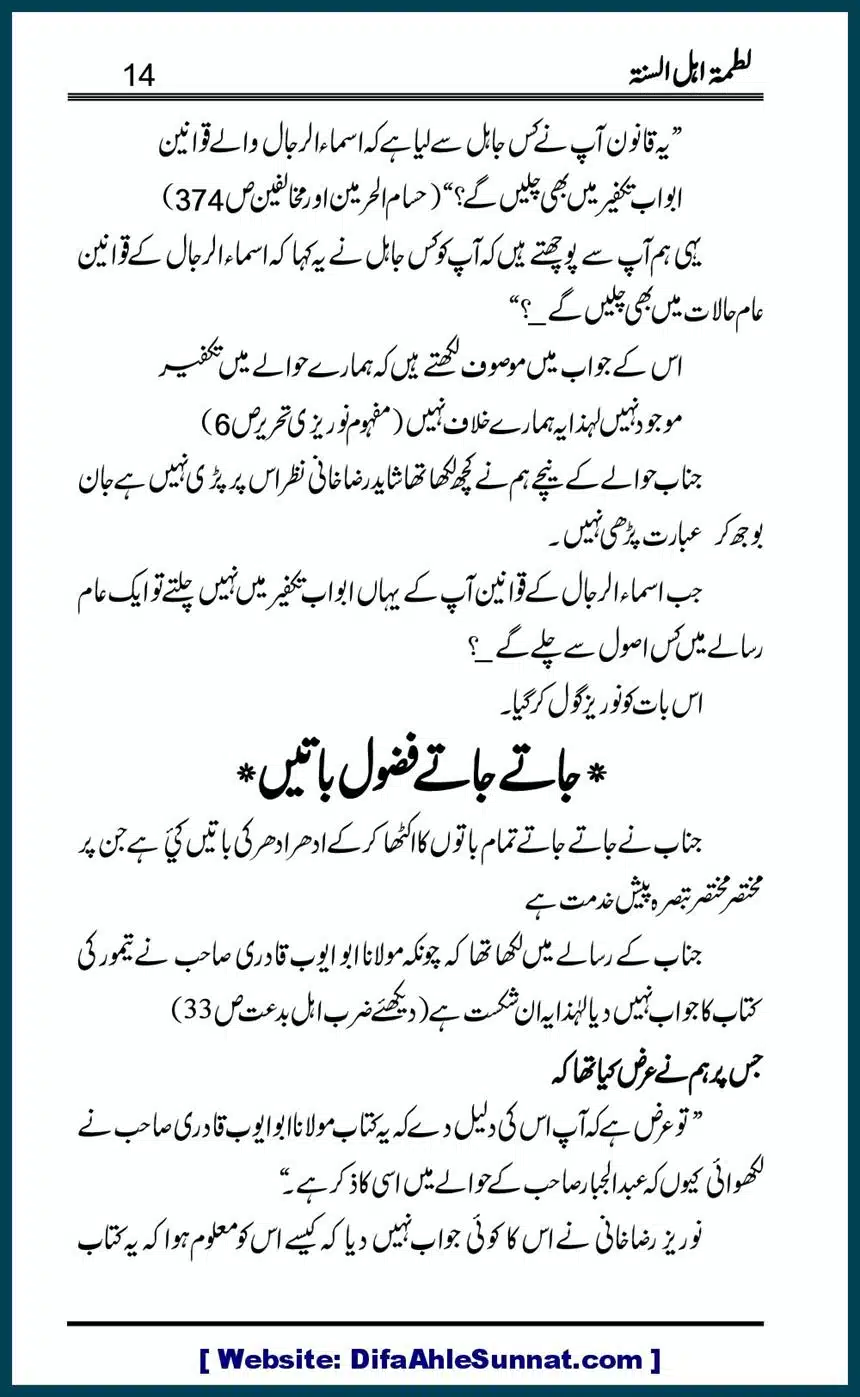 لطمۃ اہل السنۃ 14
”یہ قانون آپ نے کس جاہل سے لیا ہے کہ اسماء الرجال والے قوانین
ابواب تکفیر میں بھی چلیں گے؟“ (حسام الحرمین اور مخالفین ص374)
یہی ہم آپ سے پوچھتے ہیں کہ آپ کو کس جاہل نے یہ کہا کہ اسماء الرجال کے قوانین
عام حالات میں بھی چلیں گے _؟“
اس کے جواب میں موصوف لکھتے ہیں کہ ہمارے حوالے میں تکفیر
موجود نہیں لہذا یہ ہمارے خلاف نہیں (مفہوم نوریزی تحریر ص6)
جناب حوالے کے نیچے ہم نے کچھ لکھا تھا شاید رضاخانی نظر اس پر پڑی نہیں ہے جان
بوجھ کر عبارت پڑھی نہیں۔
جب اسماء الرجال کے قوانین آپ کے یہاں ابواب تکفیر میں نہیں چلتے تو ایک عام
رسالے میں کس اصول سے چلے گے _؟
اس بات کو نوریز گول کر گیا۔
* جاتے جاتے فضول باتیں *
جناب نے جاتے جاتے تمام باتوں کا اکٹھا کر کے ادھر ادھر کی باتیں کیَ ہے جن پر
مختصر مختصر تبصرہ پیش خدمت ہے
جناب کے رسالے میں لکھا تھا کہ چونکہ مولانا ابو ایوب قادری صاحب نے تیمور کی
کتاب کا جواب نہیں دیا لہٰذا یہ ان شکست ہے (دیکھئے ضرب اہل بدعت ص33)
جس پر ہم نے عرض کیا تھا کہ
”تو عرض ہے کہ آپ اس کی دلیل دے کہ یہ کتاب مولانا ابو ایوب قادری صاحب نے
لکھوائی کیوں کہ عبد الجبار صاحب کے حوالے میں اسی کا ذکر ہے۔“
نوریز رضاخانی نے اس کا کوئی جواب نہیں دیا کہ کیسے اس کو معلوم ہوا کہ یہ کتاب
[ Website: DifaAhleSunnat.com ]